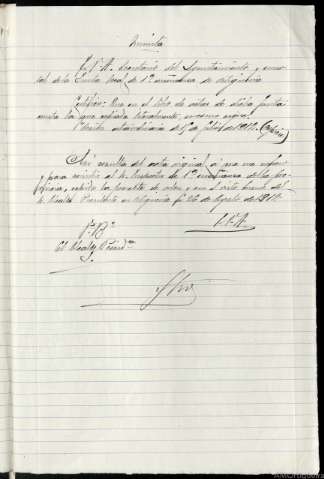 Minuta
J. F. A. Secretario del Ayuntamiento y como
tal de la Junta local de 1ª enseñanza de
Certifico: Que en el libro de actas de dicha Junta
consta la que copiada literalmente, como sigue:
extraordinaria de 17 de julio de 1917. (Copiese)
Así resulta del acta original a que me refiero
y para remitir al Sr. Inspector de 1ª enseñanza de la pro-
vincia, expido la presente de orden y con el visto bueno del
Sr. Alcalde Presidente en a 26 de Agosto de 1917.
Vº Bº
El Alcalde Presidte
J. F. A.